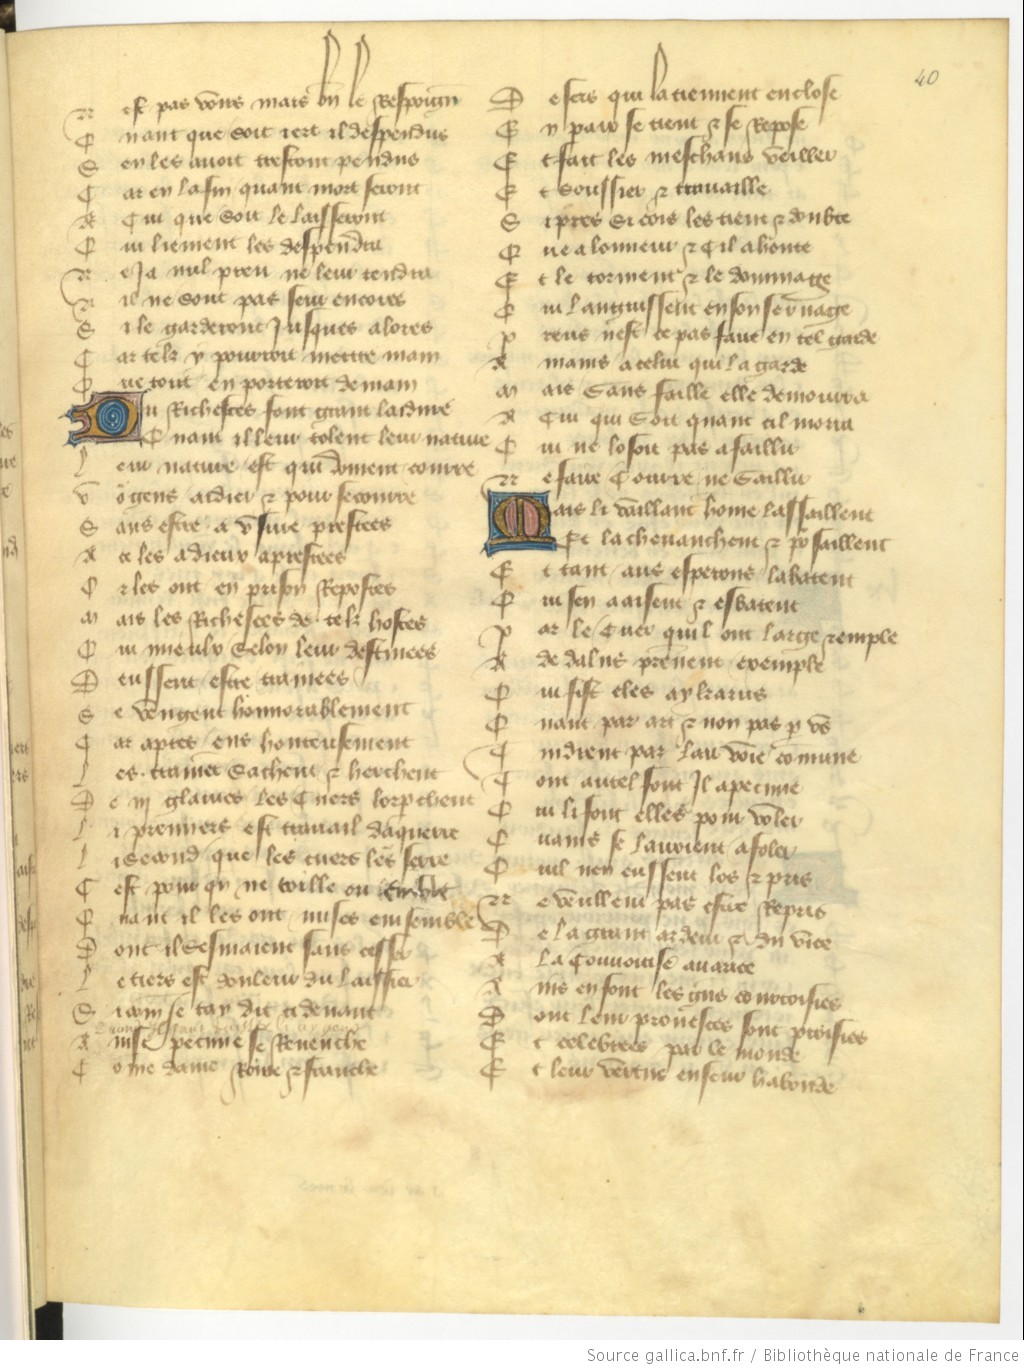 40
N est pas vōns mais bn̄ le Respoign
Q uant que soit iert il despendus
S en les avoit trestout pendus
C ar en la fin quant mort seront
A Cui que soit le laisseront
Q ui liement les despendra
N e Ja nul preu ne leur rendra
N il ne sont pas seur encores
S i le garderont Jusques a lores
C ar telz y pourroit mettre main
Q ue tout en porteroit demain
Du Richesces font grant laidure
Q uant il leur tolent leur nature
L eur nature est qui doiuent courre
V o gens aidier & pour secourre
S ans estre a vsure prestees
A ce les a dieux aprestees
O r les ont en prison Repostes
M ais les Richesces de telz hostes
Q ui mieulx Selon leur destinees
D eussent estre trainees
S e vengent honnorablement
C ar apres eus honteusement
L es trainent Sachent & herchent
D e iii glaives les Cuers lor perchent
L i premiers est travail daquerre
L i Second que les cuers les serre
C est pour qu ne toille ou
Q uant il les ont mises ensemble
D ont il sesmaient sans cesser
L e tiers est douleur du laissier
S i com se tay dit ci devant
A insi pecune se Revenche
C ome dame Roine & franche
D e sers qui la tiennent enclose
E n paix se tient & se Repose
E t fait les meschans veillier
E t soussier & travaille
S i pres Si cois les tient & donbte
Q ue a lonneur & cil a honte
E t le torment & le dommage
Q ui languissent en son servage
P reus nest ce pas faire en tel garde
A mains a celui qui la garde
M ais Sans faille elle demourra
A Cui qui Soit quant cil morra
Q ui ne losoit pas asaillir
N e faire Courre ne Saillir
Mais li vaillant home lassaillent
Et la chevauchent & po saillent
E t tant aus esperons labatent
Q ui sen aaisent & esbatent
P ar le Cuer quil ont large & emple
A dedalus prennent exemple
Q ui fist eles a ykarus
Q uant par art & non pas p vs
T indrent par lair voie comune
T out autel font Jl a pecune
Q ui li font elles pour voler
Q uains se lairoient afoler
Q uil nen eussent los & pris
N e veullent pas estre Repris
D e la grant ardeur & du vice
A La Convoitise avarice
A ins en font les gns courtoisies
D ont leur prouesces sont proisies
E t celebrees par le monde
E t leur vertue en seur habonde
Source gallica.bnf.fr / Bibliothèque nationale de France